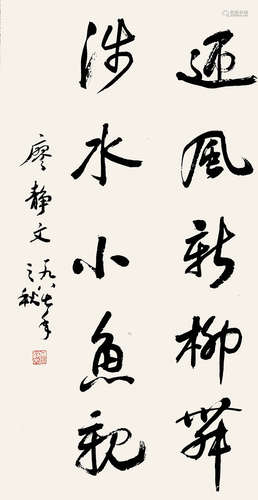 迎风新柳舞
涉水小鱼亲
廖静文 一九八七年
之秋